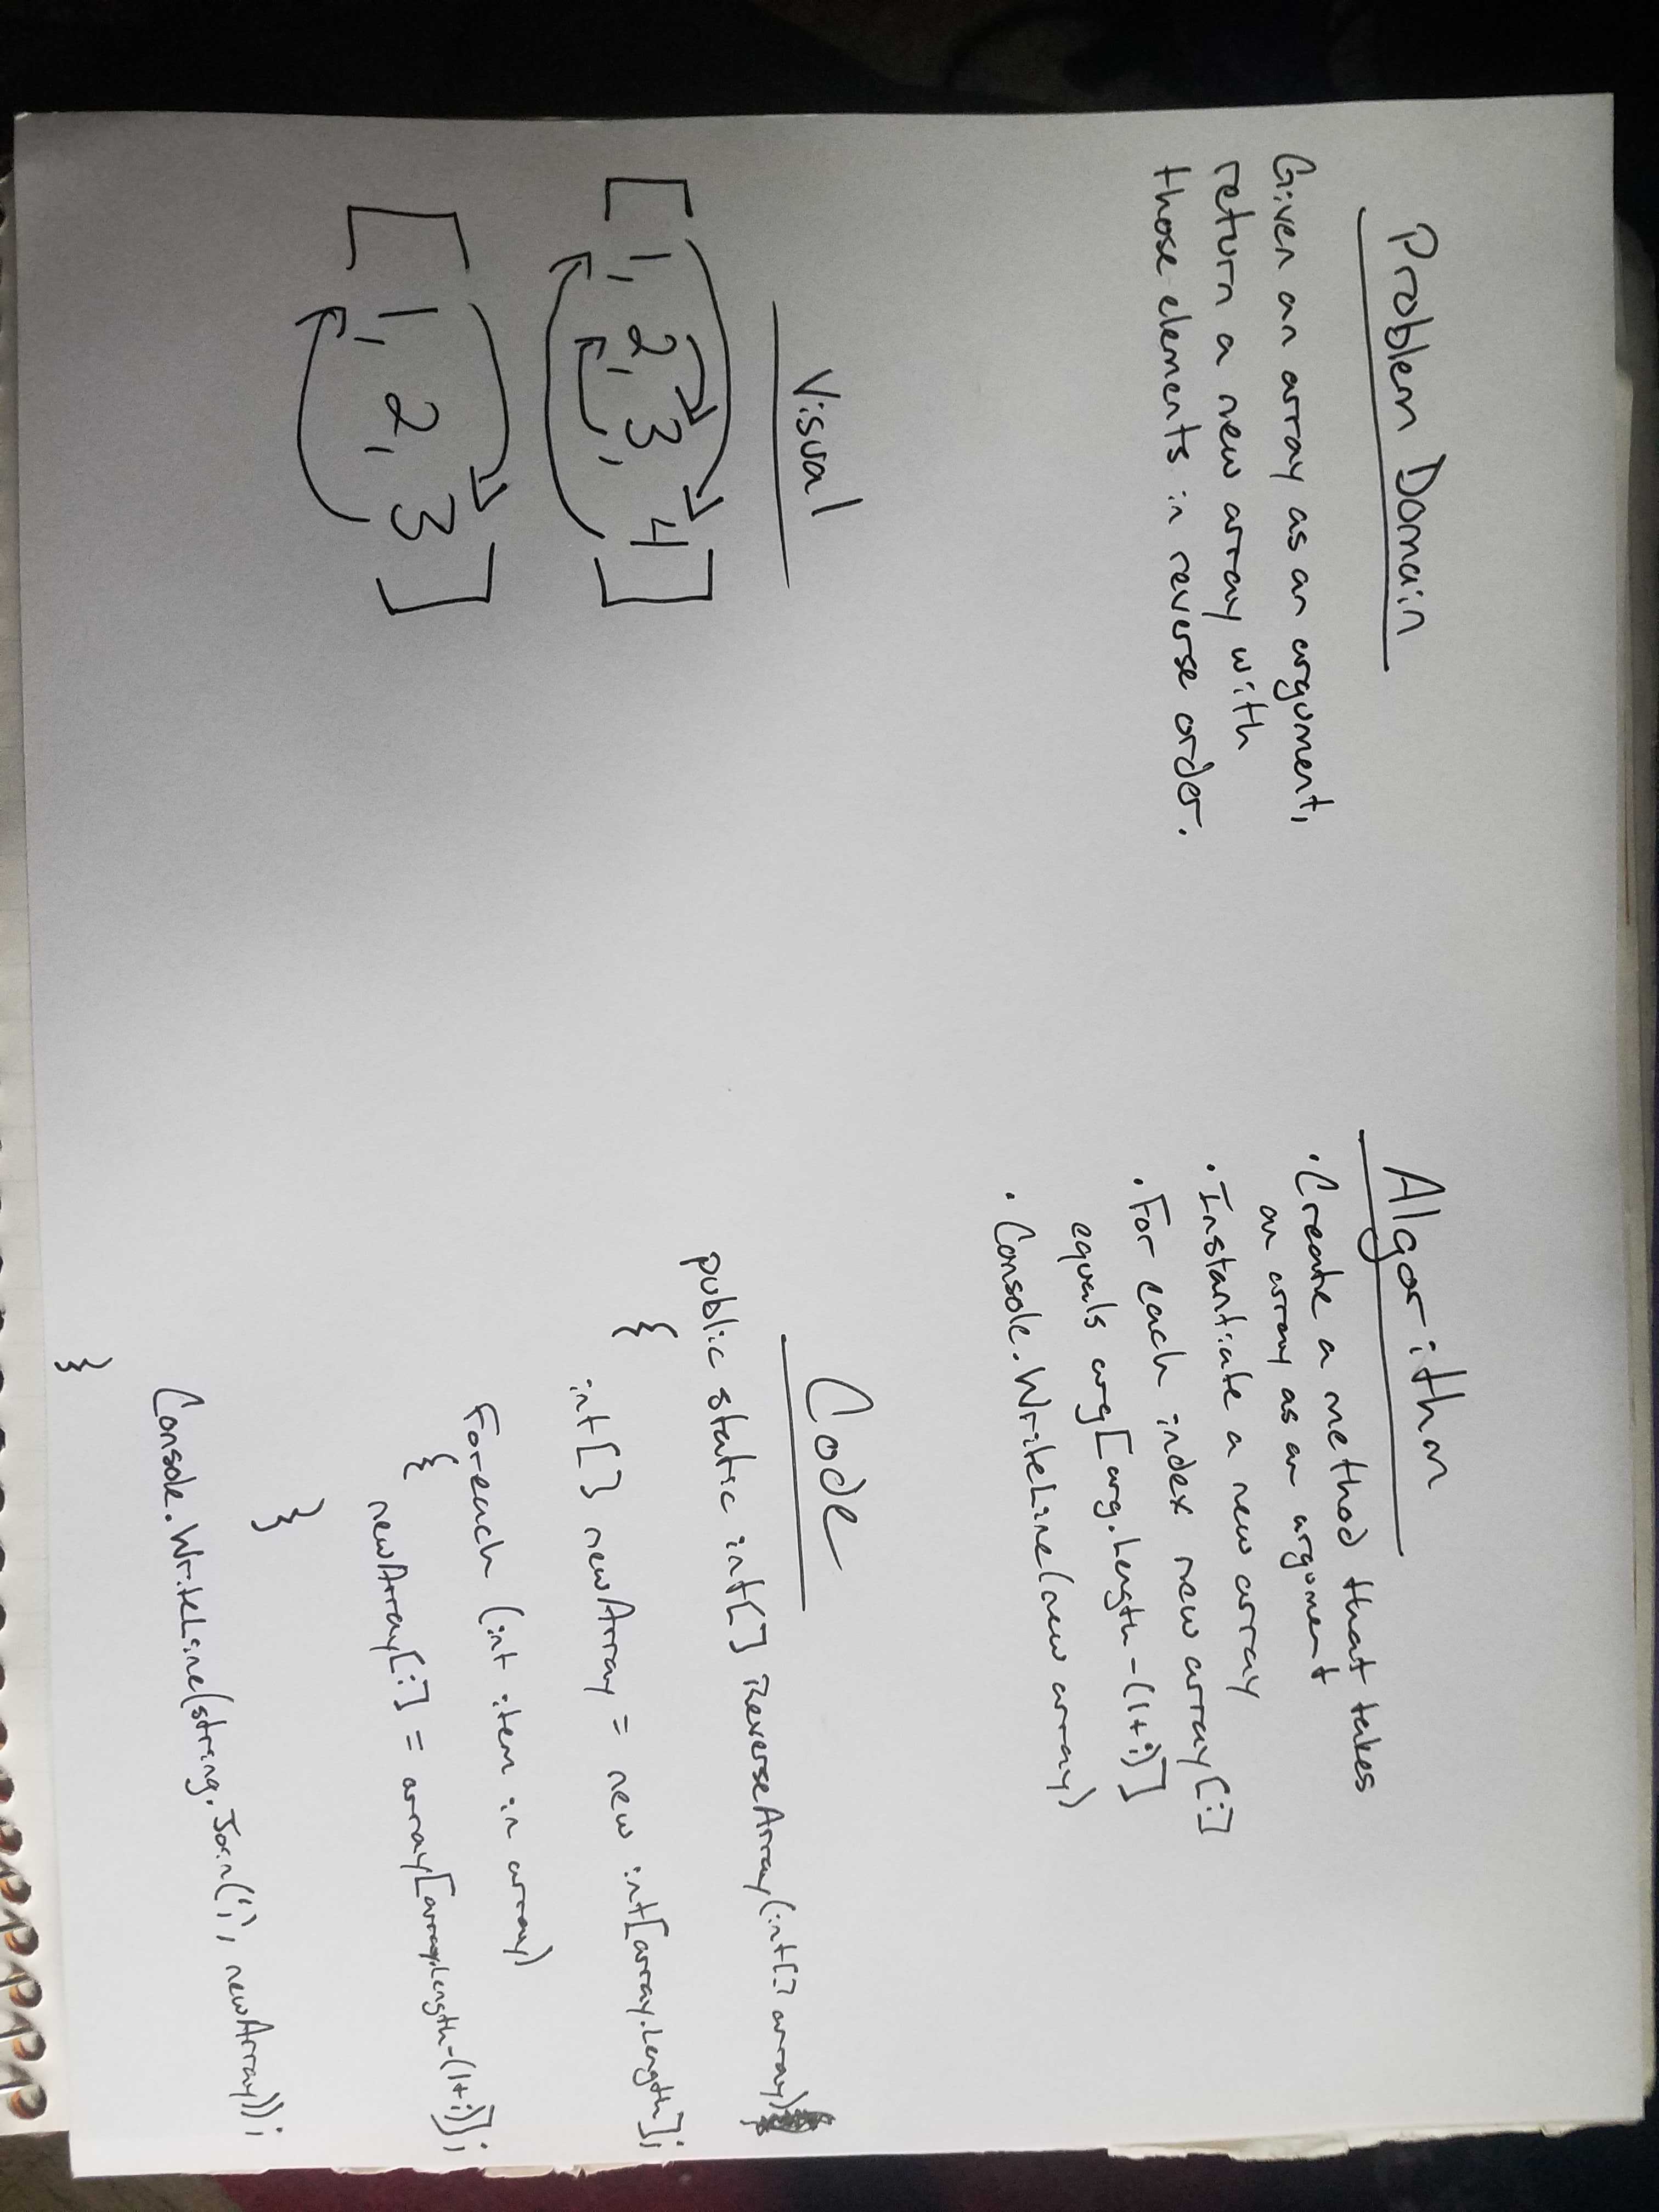 Problem Domain
Given an array as an argument,
return a new array with
those elements in reverse order.
Visual
[1, 2, 3, 4]
[1, 2, 3]
Algorithm
· Create a method that takes
an array as an argument
· Instantiate a new array
· For each index new array[i]
equals arg[arg.Length-(1+i)]
· Console.WriteLine(new array)
Code
public static int[] ReverseArray(int[] array)
{
int[] newArray = new int[array.Length];
Foreach (int item in array)
{
newArray[i] = array[array.Length-(1+i)];
}
Console.WriteLine(string.Join(',', newArray));
}